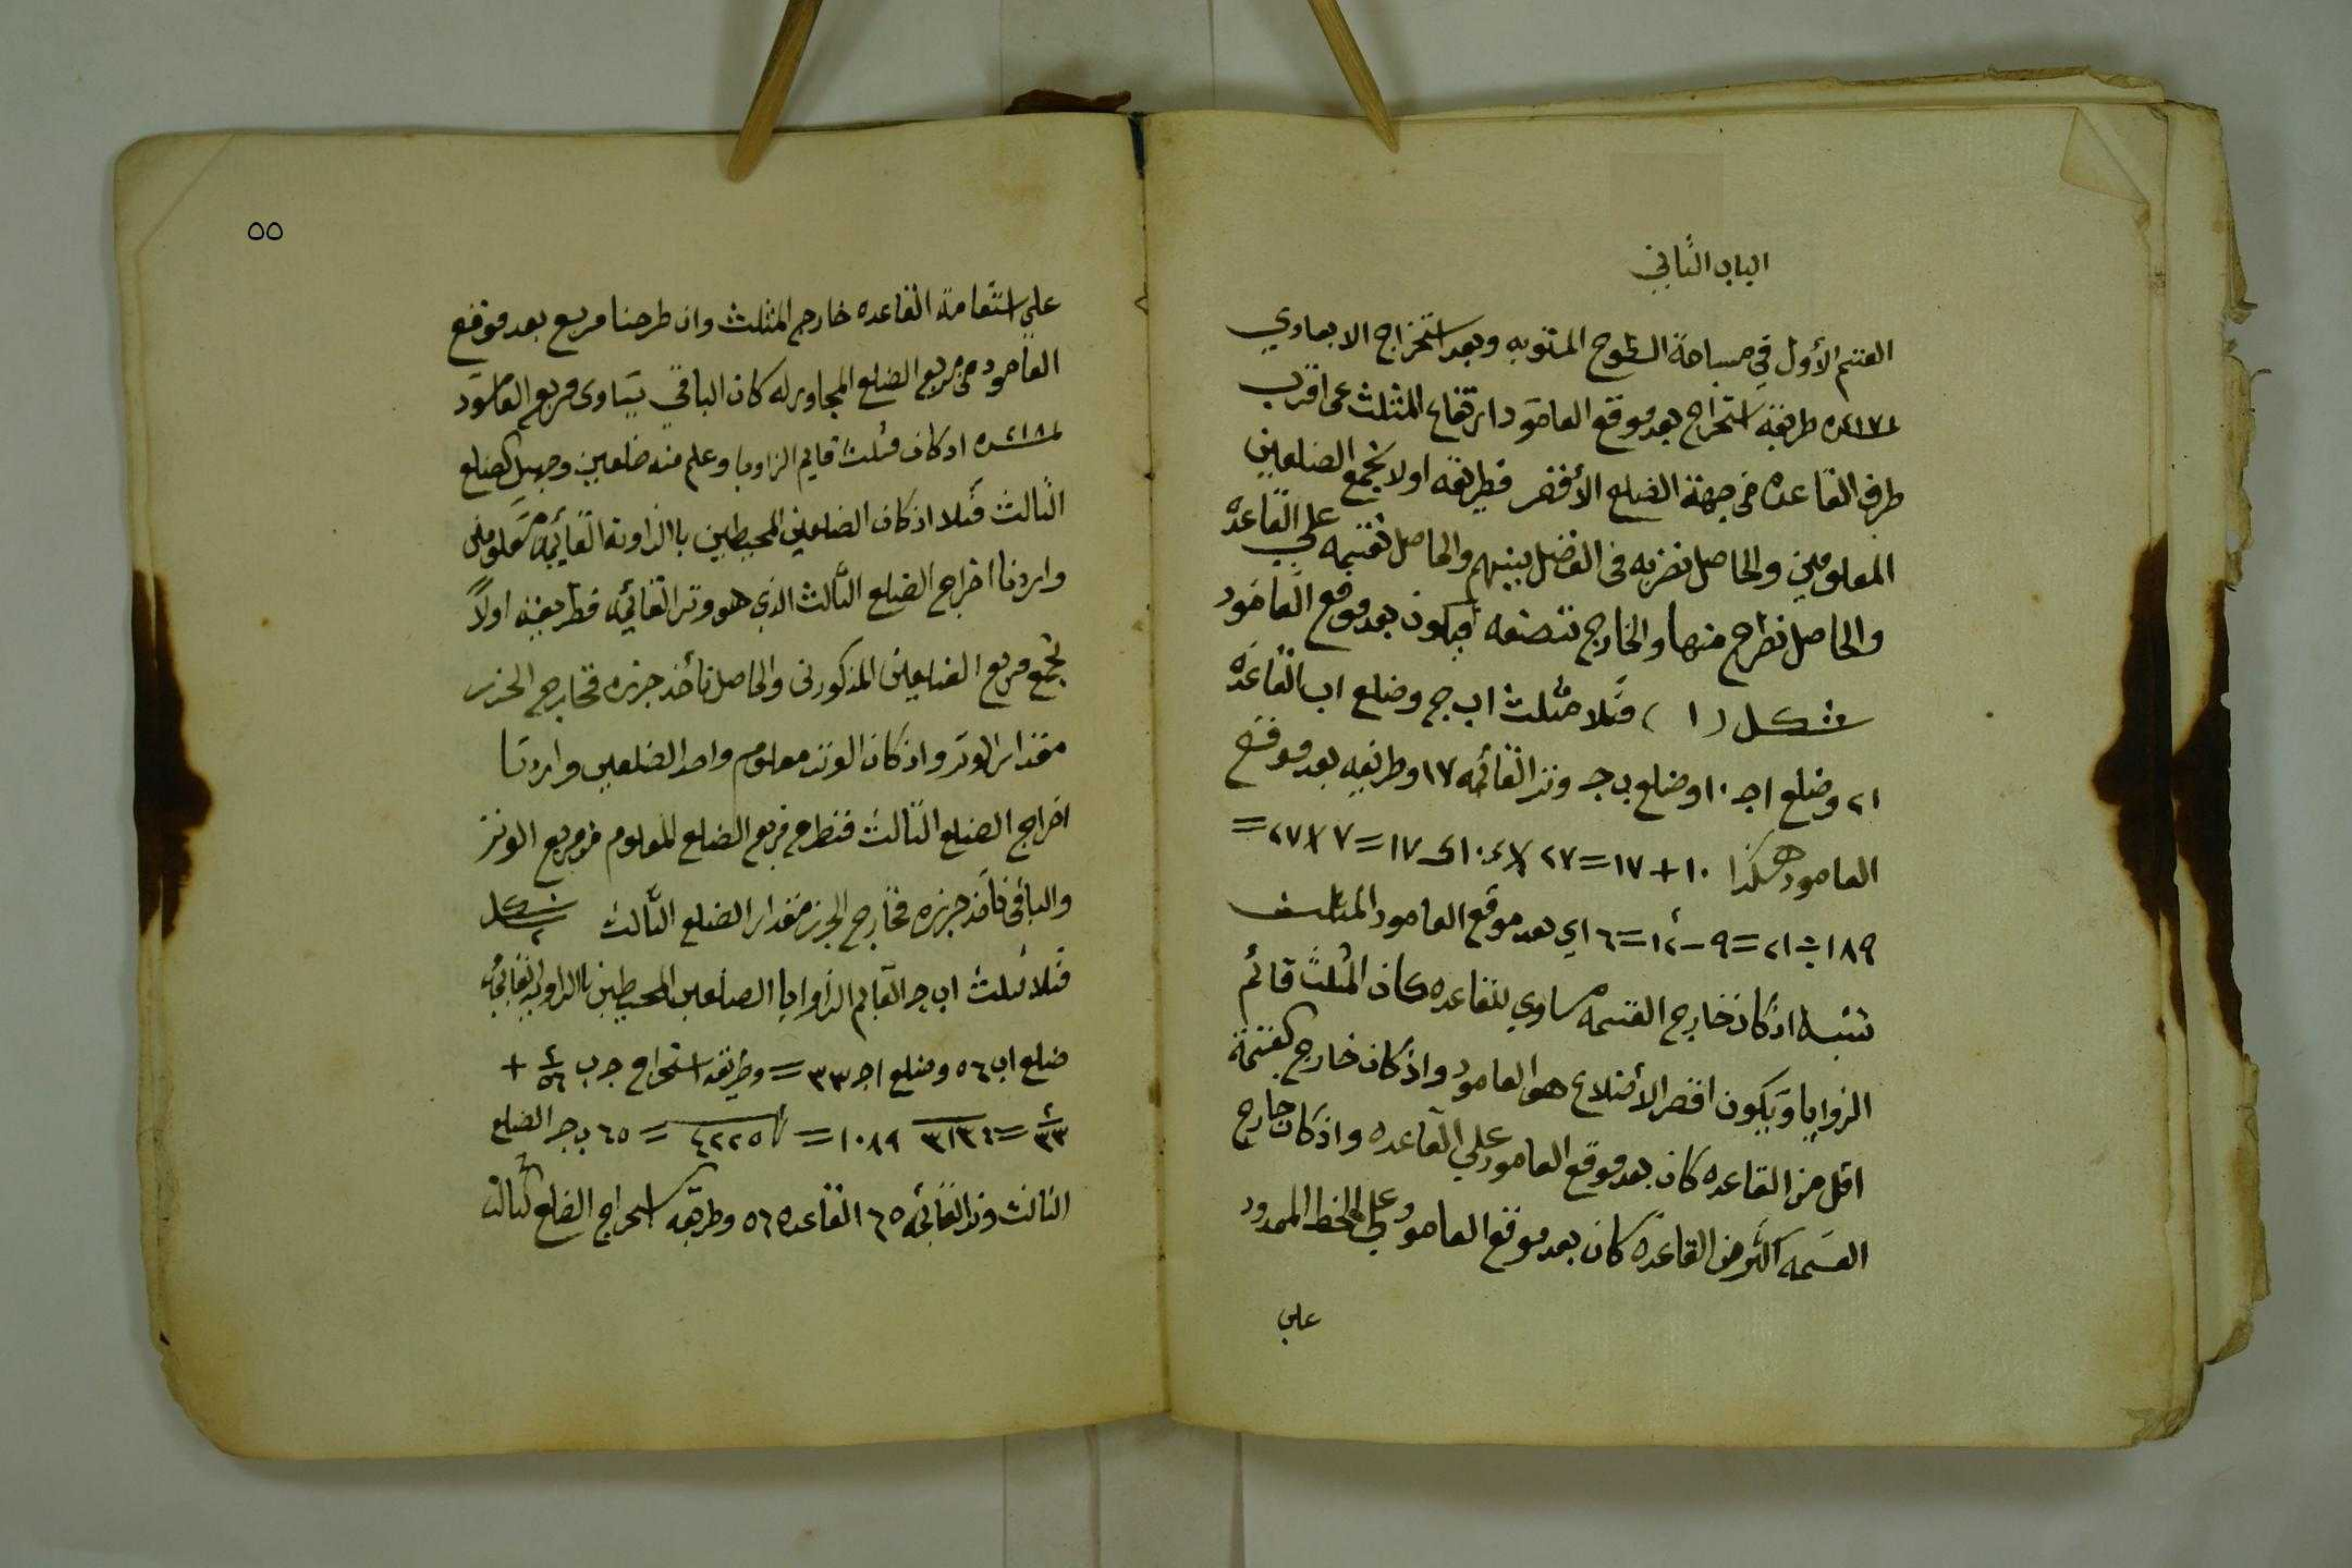 الباب الثاني
القسم الأول في مساحة السطوح المستويه وبعد استخراج الابعاد وفي
١٧١ عدد طريقة استخراج بعد موقع العامود ارتفاع المثلث عن اقرب
طرف القاعده من جهة الضلع الأقصر فطريقه اولا نجمع الضلعين
المعلومين والحاصل نضربه في الفضل بينهم والحاصل نقسمه علي القاعده
والحاصل نطرح منها والخارج ننصفه فيكون بعد موقع العامود
شكل (١) مثلا مثلث اب ج وضلع اب القاعده
٢١ وضلع اج ١٠ وضلع ب ج وتر القائمه ١٧ وطريقه بعد موقع
العامود هكذا ١٠+١٧=٢٧ ١٠ ١٧=٧ ٢٧=
١٨٩÷٢١=٩-١٢=٦ اي بعد موقع العامود المثلث
تنبيه اذ كان خارج القسمه مساوي للقاعده كان المثلث قائم
الزوايا ويكون اقصر الأضلاع هو العامود واذ كان خارج القسمة
اقل من القاعده كان بعد موقع العامود علي القاعده واذ كان خارج
القسمه اكثر من القاعده كان بعد موقع العامود علي الخط الممدود
علي
٥٥
علي استقامة القاعده خارج المثلث وان طرحنا مربع بعد موقع
العامود من مربع الضلع المجاور له كان الباقي يساوى مربع العامود
١٨١ عدد اذ كان مثلث قايم الزاويا وعلم منه ضلعين وجهل الضلع
الثالث مثلا اذ كان الضلعين المحيطين باالزاوية القائمه معلومين
واردنا اخراج الضلع الثالث الذي هو وتر القائمه فطريقته اولاً
نجمع مربع الضلعين المذكورين والحاصل نأخذ جزره فخارج الجزر
مقدار الوتر واذ كان الوتر معلوم واحد الضلعين واردنا
اخراج الضلع الثالث فنطرح مربع الضلع المعلوم من مربع الوتر
والباقي نأخذ جزره فخارج الجزر مقدار الضلع الثالث شكل ٢
مثلا مثلث اب ج القايم الزوايا الضلعين المحيطين باالزاوية القائمه
ضلع اب ٥٦ وضلع اج ٣٣ = وطريقه استخراج ج ب ٥٦٢ +
٣٣٢ = ٣١٣٦ ١٠٨٩ = ٤٢٢٥ = ٦٥ ب ج الضلع
الثالث وتر القائمه ٦٥ القاعده ٥٦ وطريقه استخراج الضلع الثالث